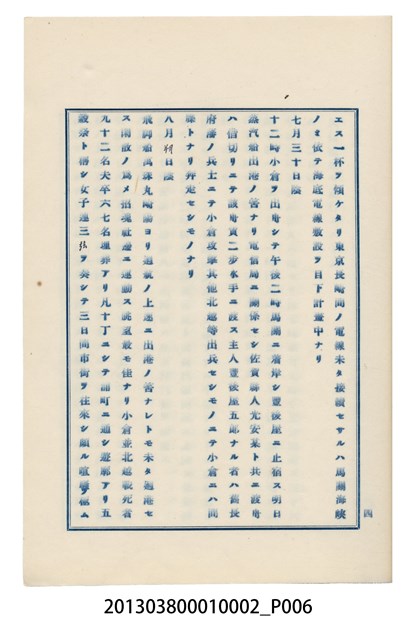 エス一杯ヲ傾ケタリ東京長崎間ノ電線未タ接續セサルハ馬關海峽
ノミ依テ海底電線敷設ヲ目下計畫中ナリ
七月三十日談
十二時小倉ヲ出舟シテ午後二時馬關ニ着岸シ豐後屋ニ止宿ス明日
蒸汽船出港ノ筈ナリ電信局ニ關係セシ佐賀縣人光安某ト共ニ設舟
ハ信切リニテ議舟賃二歩水手ニ設ス主人豐後屋五郎ナル者ハ舊長
府藩ノ兵士ニテ小倉攻擊其他北越等出兵セシモノニテ小倉ニハ間
諜トナリ奔走セシモノナリ
八月朔日談
飛脚船萬鎰丸崎陽ヨリ通航ノ上速ニ出港ノ筈ナレトモ未タ廻港セ
ス開放ノ爲メ招魂社邊ニ運動ス眺望最モ佳ナリ小倉並北越戰死者
九十二名夫卒六七名埋葬アリ凡十丁ニシテ稻町ニ通シ遊廓アリ五
設祭ト落シ女子連三絃ヲ奏シテ三日間市街ヲ往來シ頗ル喧擾ヲ極ム
四
201303800010002_P006